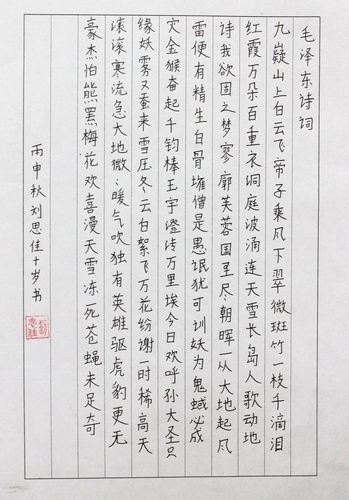 毛泽东诗词
九嶷山上白云飞帝子乘风下翠微斑竹一枝千滴泪
红霞万朵百重衣洞庭波涌连天雪长岛人歌动地
诗我欲因之梦寥廓芙蓉国里尽朝晖一从大地起风
雷便有精生白骨堆僧是愚氓犹可训妖为鬼蜮必成
灾金猴奋起千钧棒玉宇澄清万里埃今日欢呼孙大圣只
缘妖雾又重来雪压冬云白絮飞万花纷谢一时稀高天
滚滚寒流急大地微:暖气吹独有英雄驱虎豹更无
豪杰怕熊罴梅花欢喜漫天雪冻死苍蝇未足奇
丙申秋刘思佳十岁书